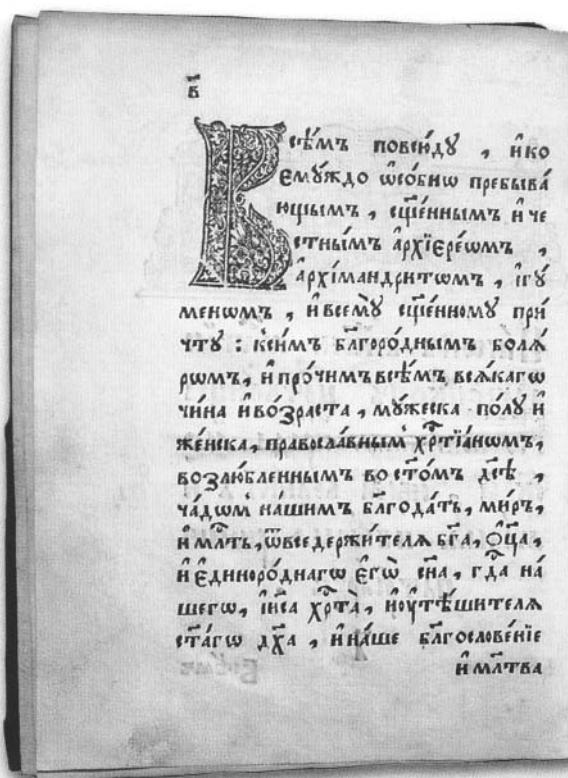 в҃
Всѣ́мъ повсю́ду , и҆ ко
ему́ждо ѡ҆со́бнѡ пребыва́
ющымъ , сщ҃е́ннымъ и҆ че
стны̑мъ а҆рхїере́ѡмъ ,
а҆рхїмандри́тѡмъ , і҆гу́
менѡмъ , и҆ всемꙋ̀ сщ҃е́нномꙋ при́
чтꙋ : к си̑мъ бл҃горо́днымъ болѧ́
рѡмъ, и҆ про́чимъ всѣ́мъ, всѧ́кагѡ
чи́на и҆ во́зраста , мꙋ́жеска по́лꙋ и҆
же́нска, правосла́внымъ хр҃тїа́нѡмъ,
возлю́бленнымъ во ст҃о́мъ дс҃ѣ ,
ча́дѡмъ на́шимъ бл҃года́ть, ми́ръ,
и҆ мл҃ть, ѿ вседержи́телѧ бг҃а, ѻ҆ц҃а̀,
и҆ є҆диноро́днагѡ є҆гѡ̀ сн҃а, гд҃а на́
шегѡ, і҆и҃са хр҃та̀, и҆ ᲂу҆тѣ́шителѧ
ст҃а́гѡ дх҃а , и҆ на́ше бл҃гослове́нїе
и҆ мл҃тва